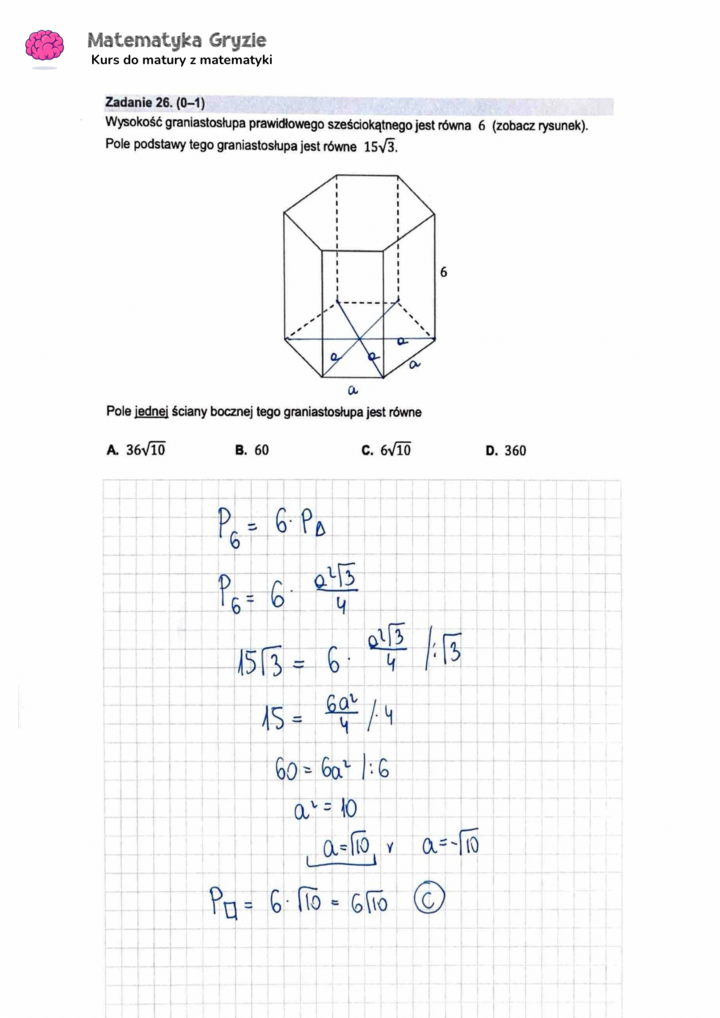 Matematyka Gryzie
Kurs do matury z matematyki
Zadanie 26. (0–1)
Wysokość graniastosłupa prawidłowego sześciokątnego jest równa 6 (zobacz rysunek).
Pole podstawy tego graniastosłupa jest równe 15√3.
6
a
a a
a
a
Pole jednej ściany bocznej tego graniastosłupa jest równe
A. 36√10 B. 60 C. 6√10 D. 360
P₆ = 6 · P△
P₆ = 6 · a²√3/4
15√3 = 6 · a²√3/4 /:√3
15 = 6a²/4 /·4
60 = 6a² /:6
a² = 10
a=√10 v a=-√10
P▯ = 6 · √10 = 6√10 C